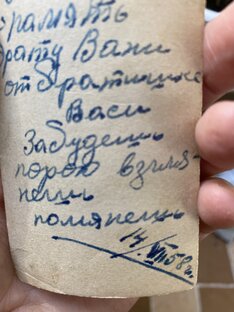 Память
брату Вани
от братишка
Васи
Забудешь
порою взгля-
нешь
помянешь
14/VIII 58г.